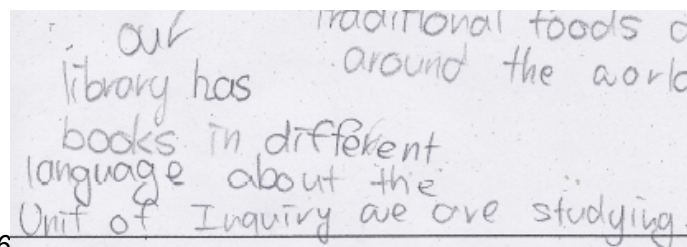 our
library has
books in different
language about the
Unit of Inquiry we are studying
Traditional foods
around the world
6